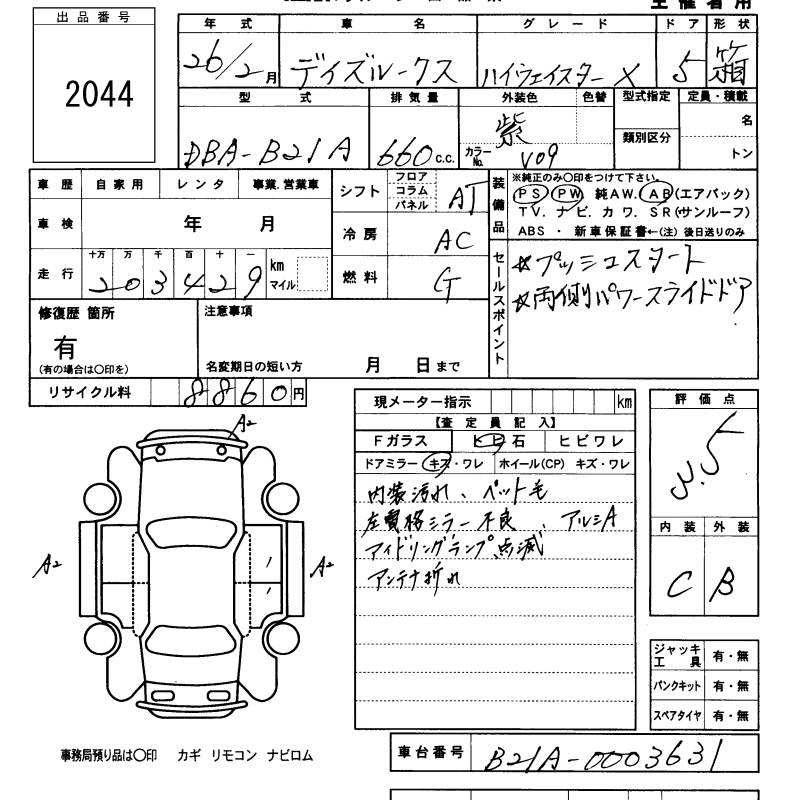 主催者用
出品番号
2044
年式 車名 グレード ドア 形状
26/2月 デイズルークス ハイウェイスター X 5 箱
型式 排気量 外装色 色替 型式指定 定員・積載
DBA-B21A 660c.c. 紫 カラーNo. V09 類別区分 名 トン
車歴 自家用 レンタ 事業.営業車
車検 年 月
走行 十万 万 千 百 十 一 km マイル
203429
シフト フロア コラム パネル AT
冷房 AC
燃料 G
装備品
※純正のみ〇印をつけて下さい。
PS PW 純AW. AB(エアバック)
TV. ナビ. カワ. SR(サンルーフ)
ABS ・ 新車保証書←(注) 後日送りのみ
セールスポイント
☆プッシュスタート
☆両側パワースライドドア
修復歴 箇所
有
(有の場合は〇印を)
注意事項
名変期日の短い方 月 日まで
リサイクル料 8860円
現メーター指示 km
【査定員記入】
Fガラス ヒ石 ヒビワレ
ドアミラー キズ・ワレ ホイール(CP) キズ・ワレ
内装汚れ、ペット毛
左電格ミラー不良、アルミA
アイドリングランプ点滅
アンテナ折れ
評価点
3.5
内装 外装
C B
A2
A2 A2
ジャッキ工具 有・無
パンクキット 有・無
スペアタイヤ 有・無
事務局預り品は〇印 カギ リモコン ナビロム
車台番号 B21A-0003631